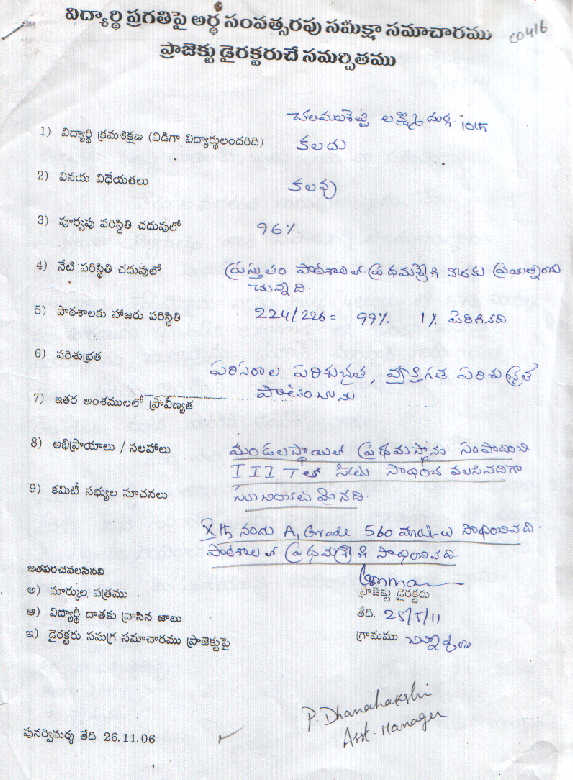 విద్యార్థి ప్రగతిపై అర్థ సంవత్సరపు సమీక్షా సమాచారము
CO416
ప్రాజెక్టు డైరక్టరుచే సమర్పితము
లక్ష్మీ దుర్గ 10th
1) విద్యార్థి క్రమశిక్షణ (విడిగా విద్యార్థులందరిది)
కలదు
2) వినయ విధేయతలు
కలవు
3) పూర్వపు పరిస్థితి చదువులో
96%
4) నేటి పరిస్థితి చదువులో
ప్రస్తుతం పాఠశాలలో ప్రథమశ్రేణి
చున్నది
5) పాఠశాలకు హాజరు పరిస్థితి
224/226 = 99% 1% పెరిగినది
6) పరిశుభ్రత
పరిసరాల పరిశుభ్రత, వ్యక్తిగత పరిశుభ్రత
7) ఇతర అంశములలో ప్రావీణ్యత
పాటించును
8) అభిప్రాయాలు / సలహాలు
మండలస్థాయిలో ప్రథమస్థానం సంపాదించి
IIIT లో సీటు సాధించ వలసినదిగా
9) కమిటీ సభ్యుల సూచనలు
Xth నందు A1 Grade 560 మార్కులు సాధించినది
పాఠశాలలో ప్రథమశ్రేణి సాధించినది
జతపరచవలసినవి
అ) మార్కుల పత్రము
ప్రాజెక్టు డైరక్టరు
ఆ) విద్యార్థి దాతకు వ్రాసిన జాబు
తేది 25/5/11
ఇ) డైరక్టరు సమగ్ర సమాచారము ప్రాజెక్టుపై
గ్రామము
P. Dhanalakshi
Asst. Manager
పునర్విమర్శ తేది 26.11.06